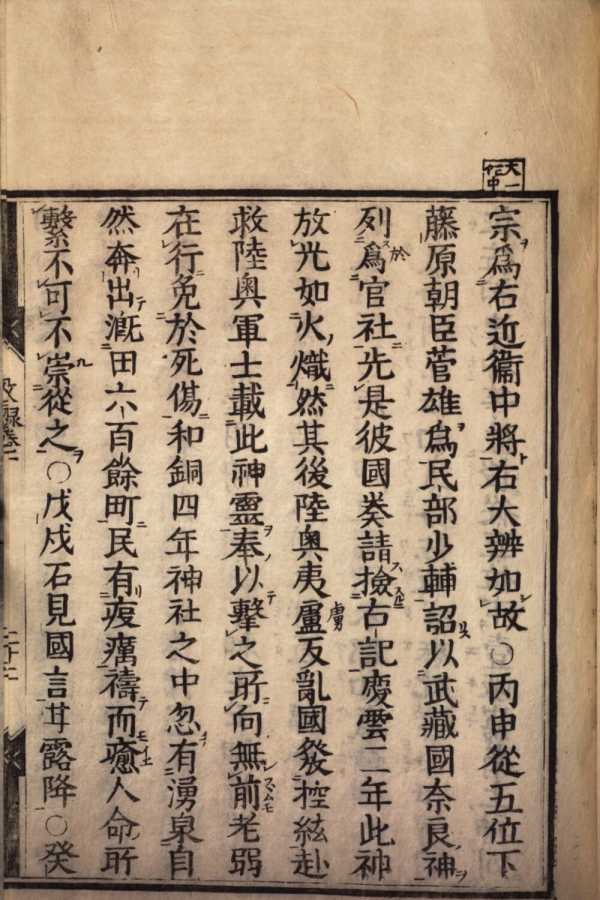 天一
廿三中
宗為右近衞中將右大辨如故○丙申從五位下
藤原朝臣菅雄為民部少輔詔以武藏國奈良神
列於為官社先是彼國奏請撿古記慶雲二年此神
放光如火熾然其後陸奧夷虜反亂國發控絃赴
救陸奧軍士載此神靈奉以擊之所向無前老弱
在行免於死傷和銅四年神社之中忽有湧泉自
然奔出漑田六百餘町民有疫癘禱而癒人命所
繫不可不崇從之○戊戌石見國言甘露降○癸